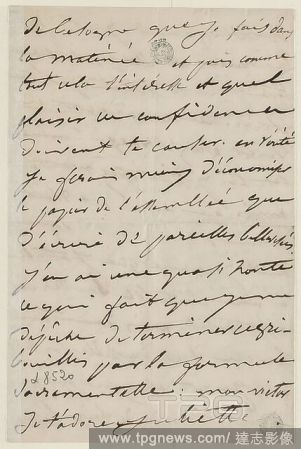 de besogne que je fais dans
la matinée et puis comme
tout cela t'intéresse et quel
plaisir ces confidences
doivent te causer. en vérité
je ferais mieux d'économiser
le papier de l'assemblée que
d'écrire de pareilles
J'en ai une quasi honte
ce qui fait que je me
dépêche de terminer ce gri-
bouillis par la formule
28520
sacramentelle. mon victor
Je t'adore Juliette
TPG
www.tpgnews.com/達志影像